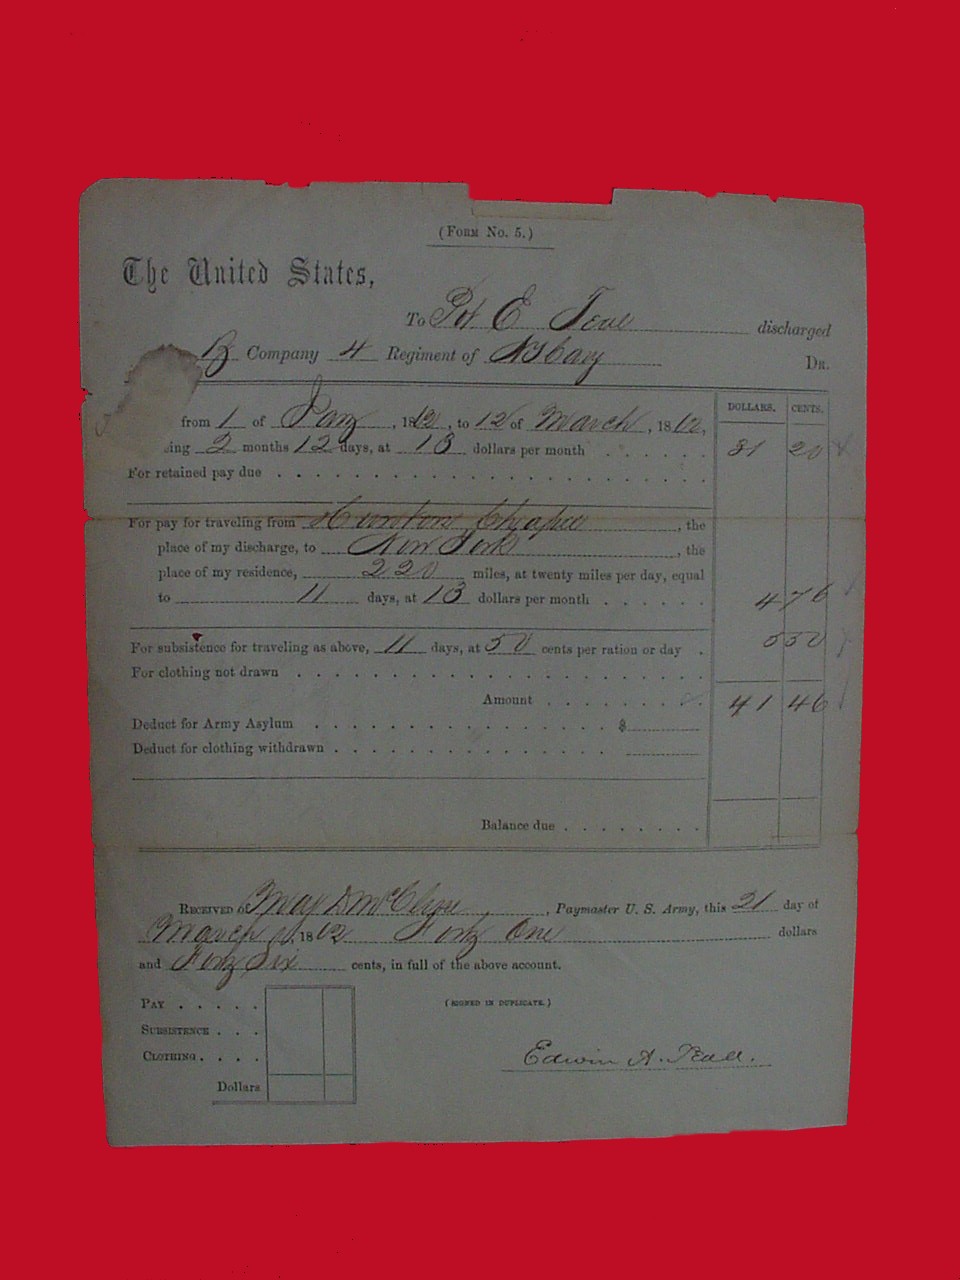 (FORM No. 5.)
The United States,
To Pvt E Teall discharged
B Company 4 Regiment of DR.
DOLLARS. CENTS.
from 1 of Jany, 1862, to 12 of March, 1862,
ing 2 months 12 days, at 13 dollars per month . . . . . . 31 20
For retained pay due
For pay for traveling from Hunters Chapel, the
place of my discharge, to New York, the
place of my residence, 220 miles, at twenty miles per day, equal
to 11 days, at 13 dollars per month . . . . . . 4 76
For subsistence for traveling as above, 11 days, at 50 cents per ration or day . 5 50
For clothing not drawn
Amount 41 46
Deduct for Army Asylum $
Deduct for clothing withdrawn
Balance due
RECEIVED of Maj D McClure, Paymaster U. S. Army, this 21 day of
March, 1862 Forty One dollars
and Forty Six cents, in full of the above account.
PAY
(SIGNED IN DUPLICATE.)
SUBSISTENCE
CLOTHING
Edwin A. Teall.
Dollars